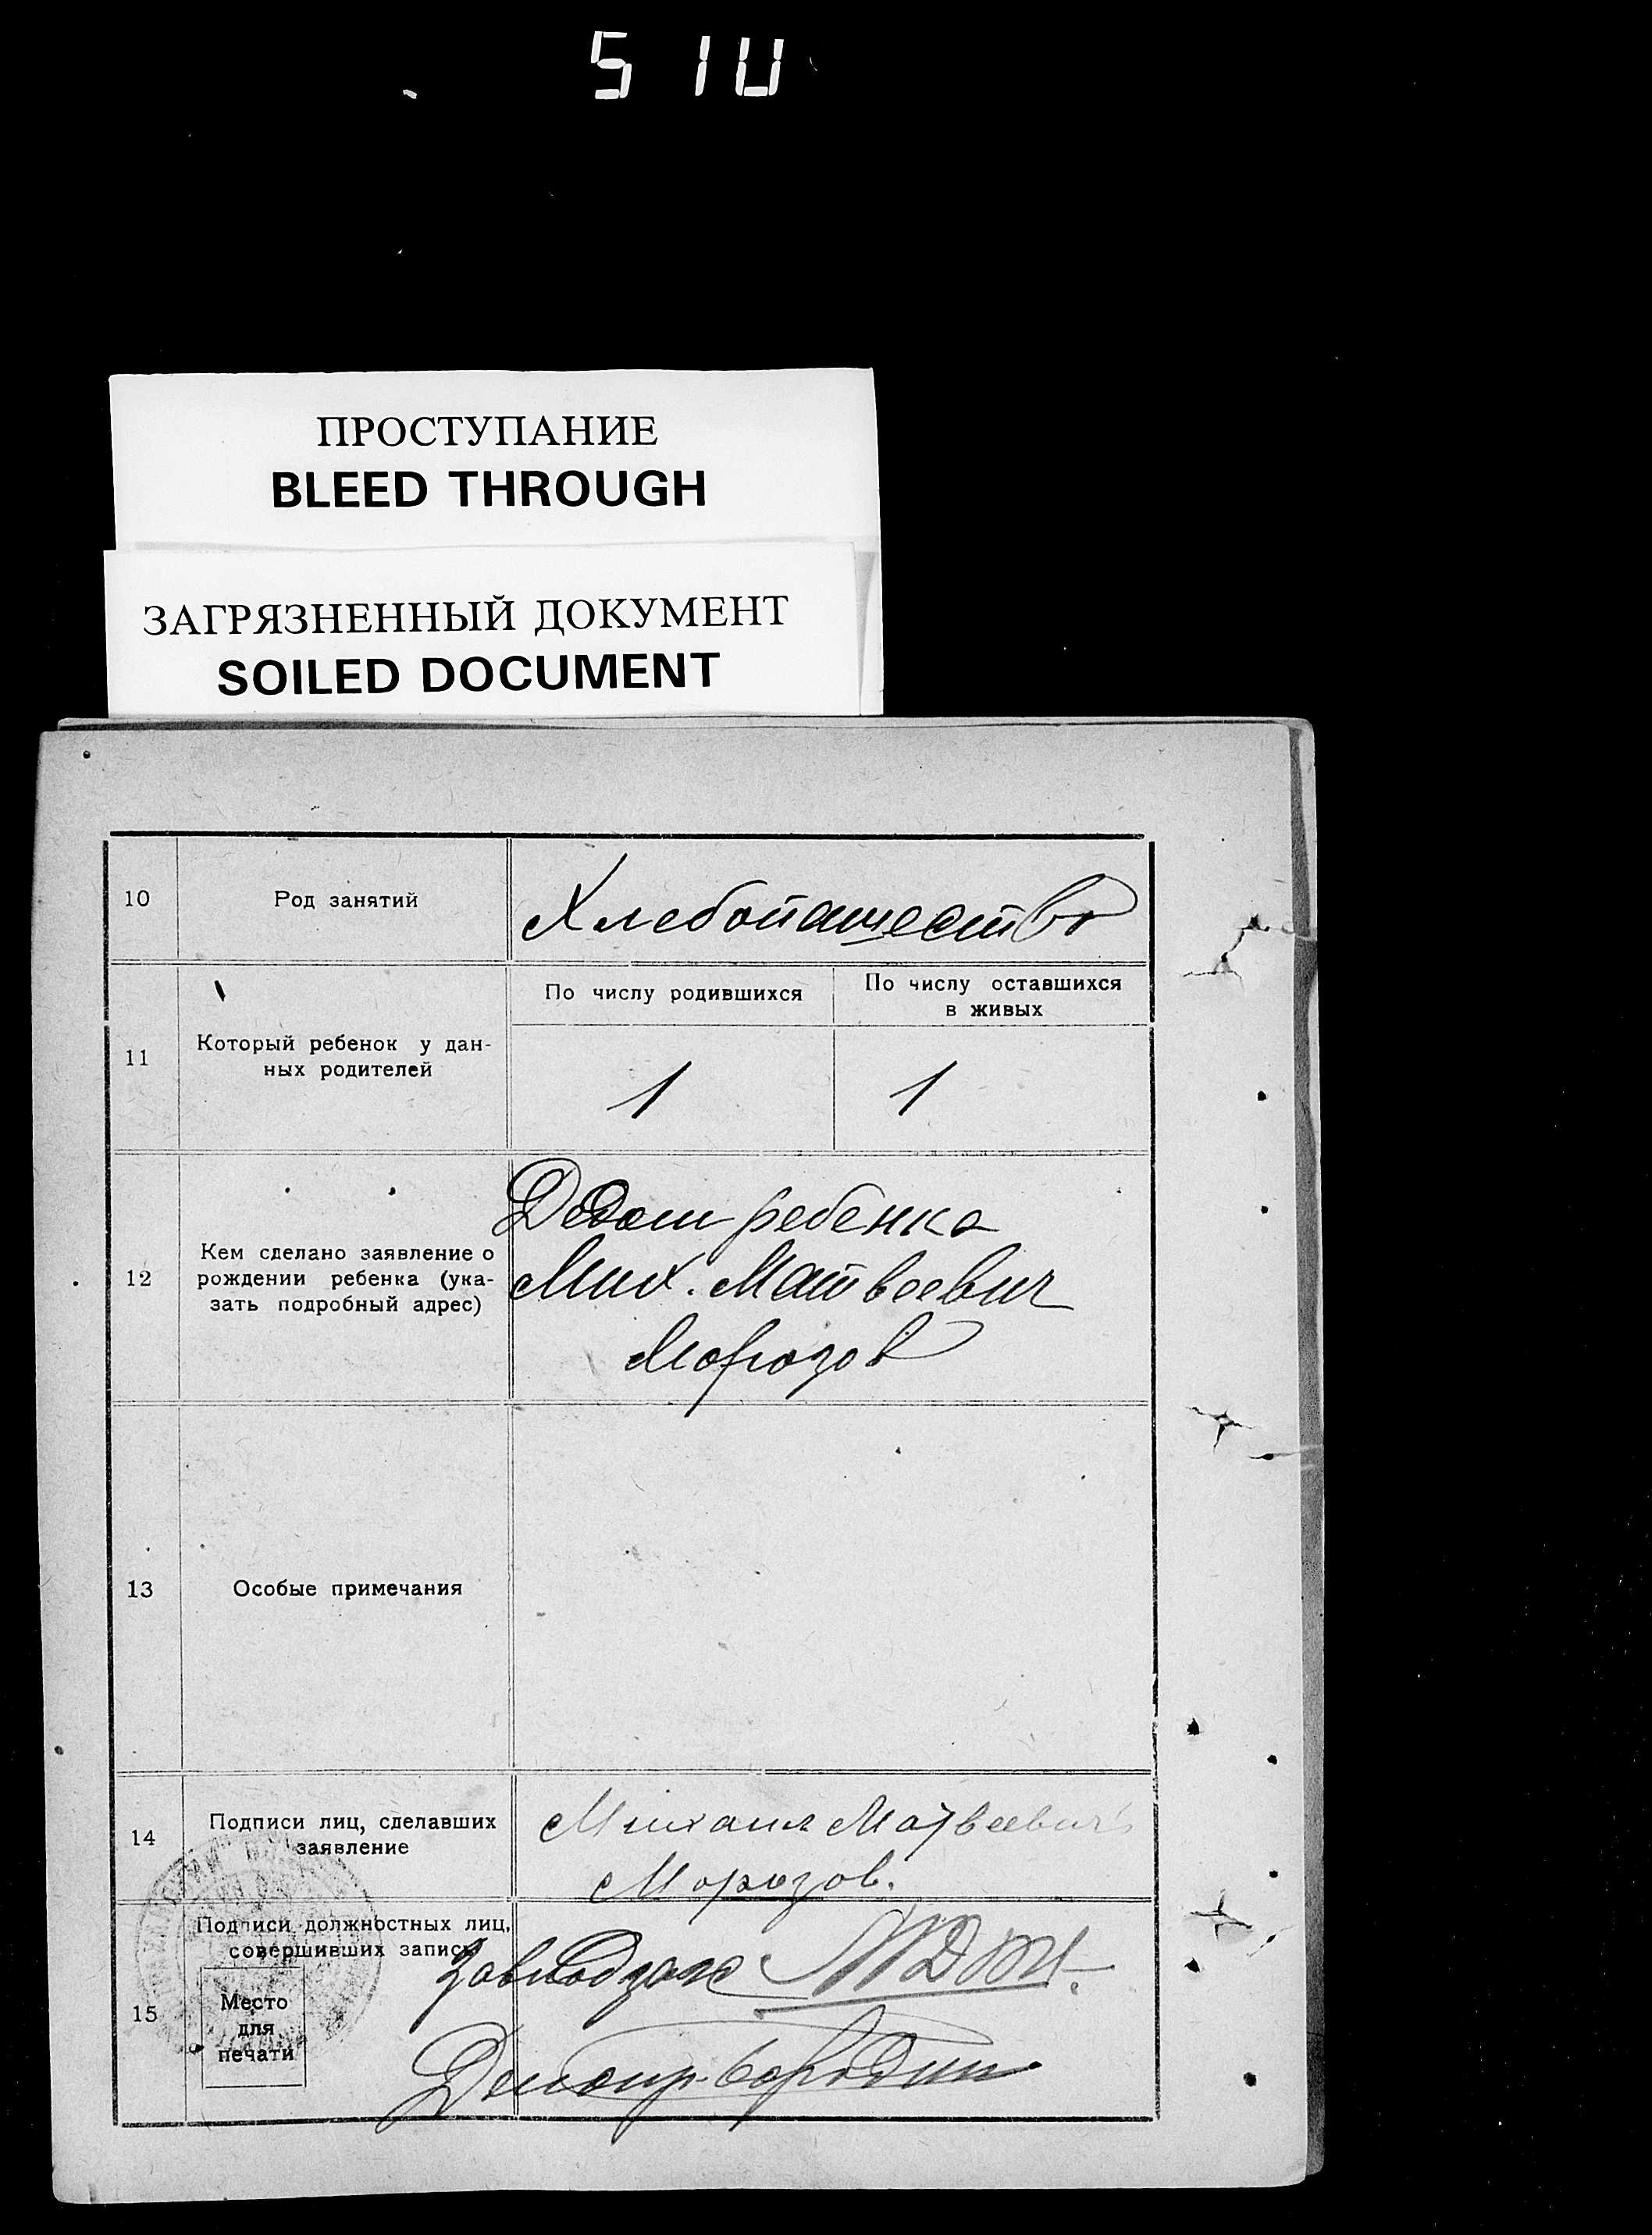 510
ПРОСТУПАНИЕ
BLEED THROUGH
ЗАГРЯЗНЕННЫЙ ДОКУМЕНТ
SOILED DOCUMENT
10
Род занятий
Хлебопашество
11
Который ребенок у дан-
ных родителей
По числу родившихся
По числу оставшихся
в живых
1
1
12
Кем сделано заявление о
рождении ребенка (ука-
зать подробный адрес)
Дедом ребенка
Мих. Матвеевич
Морозов
13
Особые примечания
14
Подписи лиц, сделавших
заявление
Михаил Матвеевич
Морозов.
15
Подписи должностных лиц,
совершивших запись
Место
для
печати
Завподзагс
Делопр. Бородин